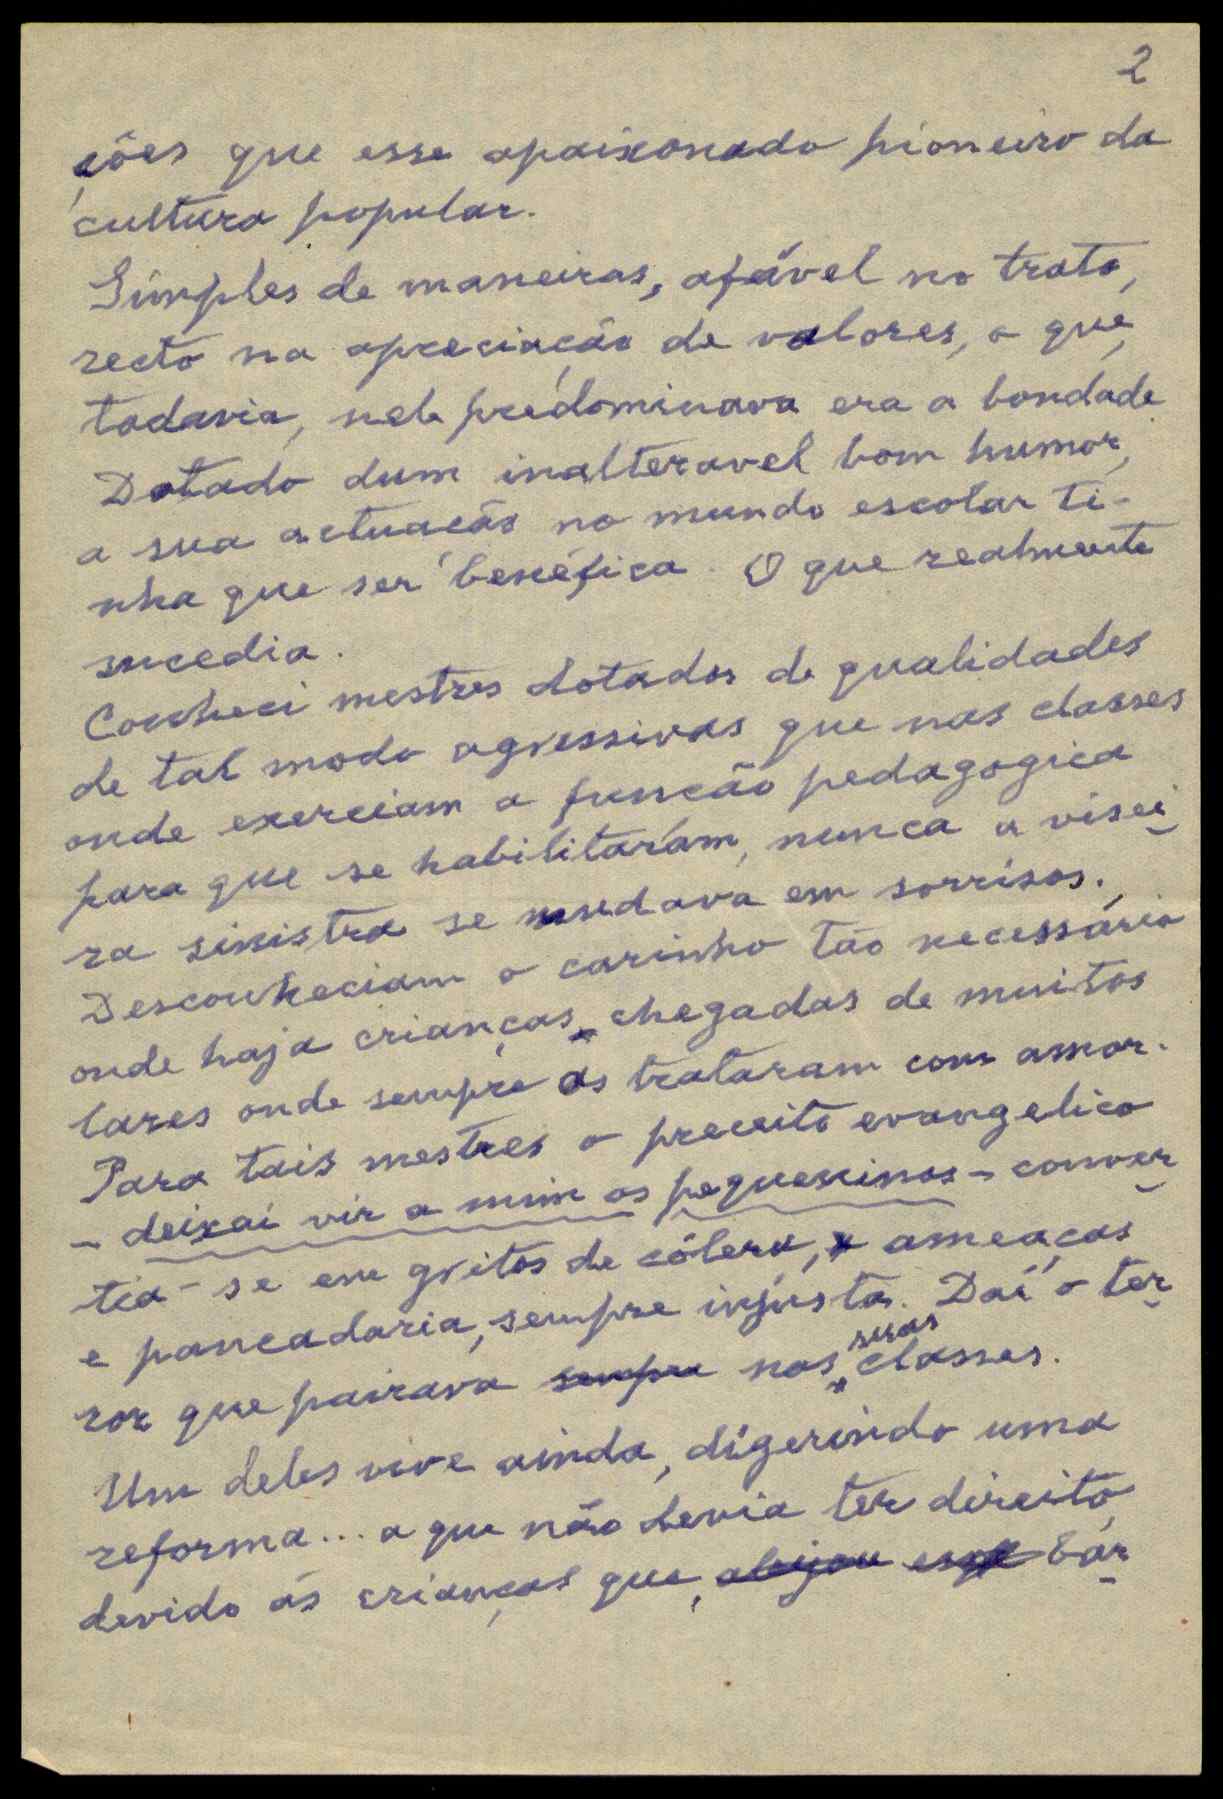 2
ções que esse apaixonado pioneiro da
cultura popular.
Simples de maneiras, afável no trato,
recto na apreciação de valores, o que,
todavia, nele predominava era a bondade
Dotado dum inalteravel bom humor,
a sua actuação no mundo escolar ti-
nha que ser benéfica. O que realmente
sucedia.
Conheci mestres dotados de qualidades
de tal modo agressivas que nas classes
onde exerciam a função pedagogica
para que se habilitaram, nunca a visei
ra sinistra se mudava em sorrisos.
Desconheciam o carinho tão necessário
onde haja crianças, chegadas de muitos
lares onde sempre as trataram com amor.
Para tais mestres o preceito evangelico
- deixai vir a mim os pequeninos - conver
tia-se em gritos de cólera, ameaças
e pancadaria, sempre injusta. Daí o ter
ror que pairava sempre nas suas classes.
Um deles vive ainda, digerindo uma
reforma... a que não devia ter direito,
devido ás crianças que, aleijou